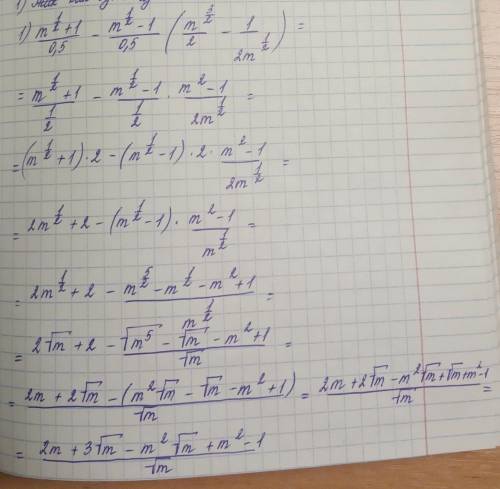 1) (m^{1/2}+1)/0,5 − (m^{1/2}−1)/0,5 (m^{3/2}/2 − 1/(2m^{1/2})) =
= (m^{1/2}+1)/(1/2) − (m^{1/2}−1)/(1/2) · (m^2−1)/(2m^{1/2}) =
= (m^{1/2}+1)·2 − (m^{1/2}−1)·2· (m^2−1)/(2m^{1/2}) =
= 2m^{1/2}+2 − (m^{1/2}−1)· (m^2−1)/m^{1/2} =
= 2m^{1/2}+2 − (m^{5/2}−m^{1/2}−m^2+1)/m^{1/2} =
= 2√m+2 − (√m^5−√m−m^2+1)/√m =
= (2m+2√m−(m^2√m−√m−m^2+1))/√m = (2m+2√m−m^2√m+√m+m^2−1)/√m =
= (2m+3√m−m^2√m+m^2−1)/√m